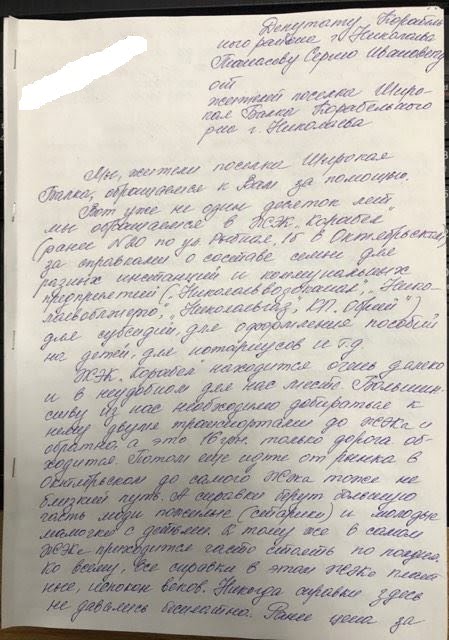 Депутату Корабель
ного района г. Николаева
Танасову Сергею Ивановичу
от
жителей поселка Широ-
кая Балка Корабельного
р-на г. Николаева
Мы, жители поселка Широкая
Балка, обращаемся к Вам за помощью.
Вот уже не один десяток лет
мы обращаемся в ЖЭК "Корабел"
(ранее №20 по ул. Рыбная, 15 в Октябрьском)
за справками о составе семьи для
разных инстанций и коммунальных
предприятий ("Николаевводоканал", "Нико-
лаевоблэнерго", "Николаевгаз", КП.
для субсидий, для оформления пособий
на детей, для нотариусов и т.д
ЖЭК "Корабел" находится очень далеко
и в неудобном для нас месте. Большин-
ству из нас необходимо добираться к
нему двумя транспортами до ЖЭКа и
обратно, а это 16 грн. только дорога об-
ходится. Потом еще идти от рынка в
Октябрьском до самого ЖЭКа тоже не
близкий путь. А справки берут большую
часть люди пожилые (старики) и молодые
мамочки с детьми. К тому же в самом
ЖЭКе приходится часто стоять по полдня.
Ко всему, все справки в этом ЖЭКе плат-
ные, испокон веков. Никогда справки здесь
не давались бесплатно. Ранее цена за